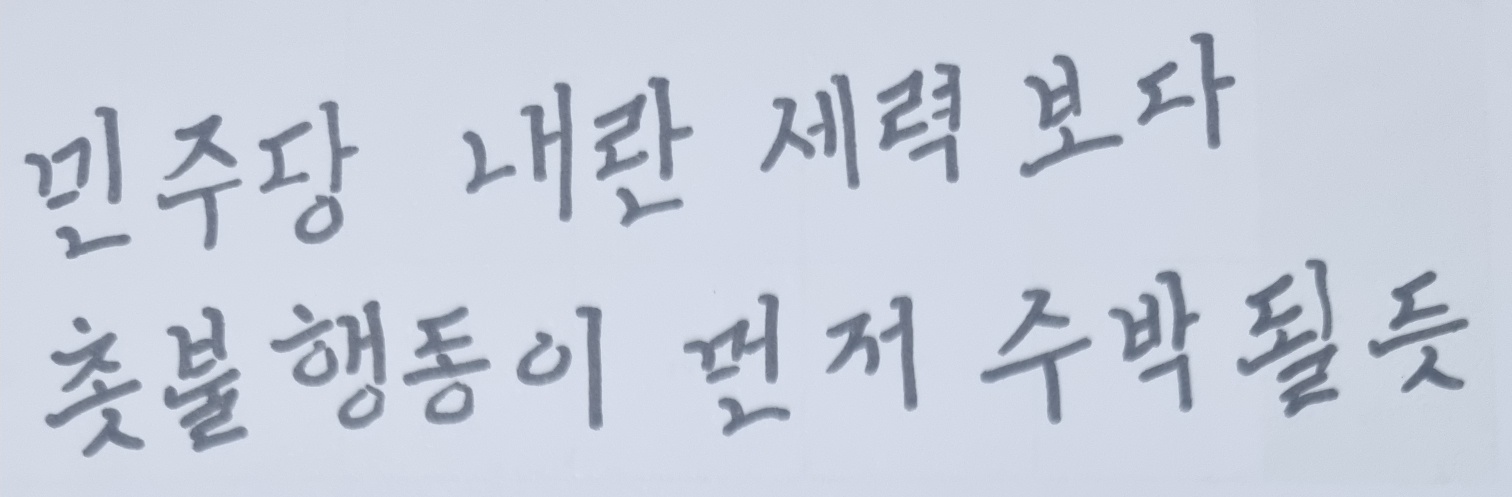 민주당 내란 세력 보다
촛불행동이 먼저 수박 될 듯